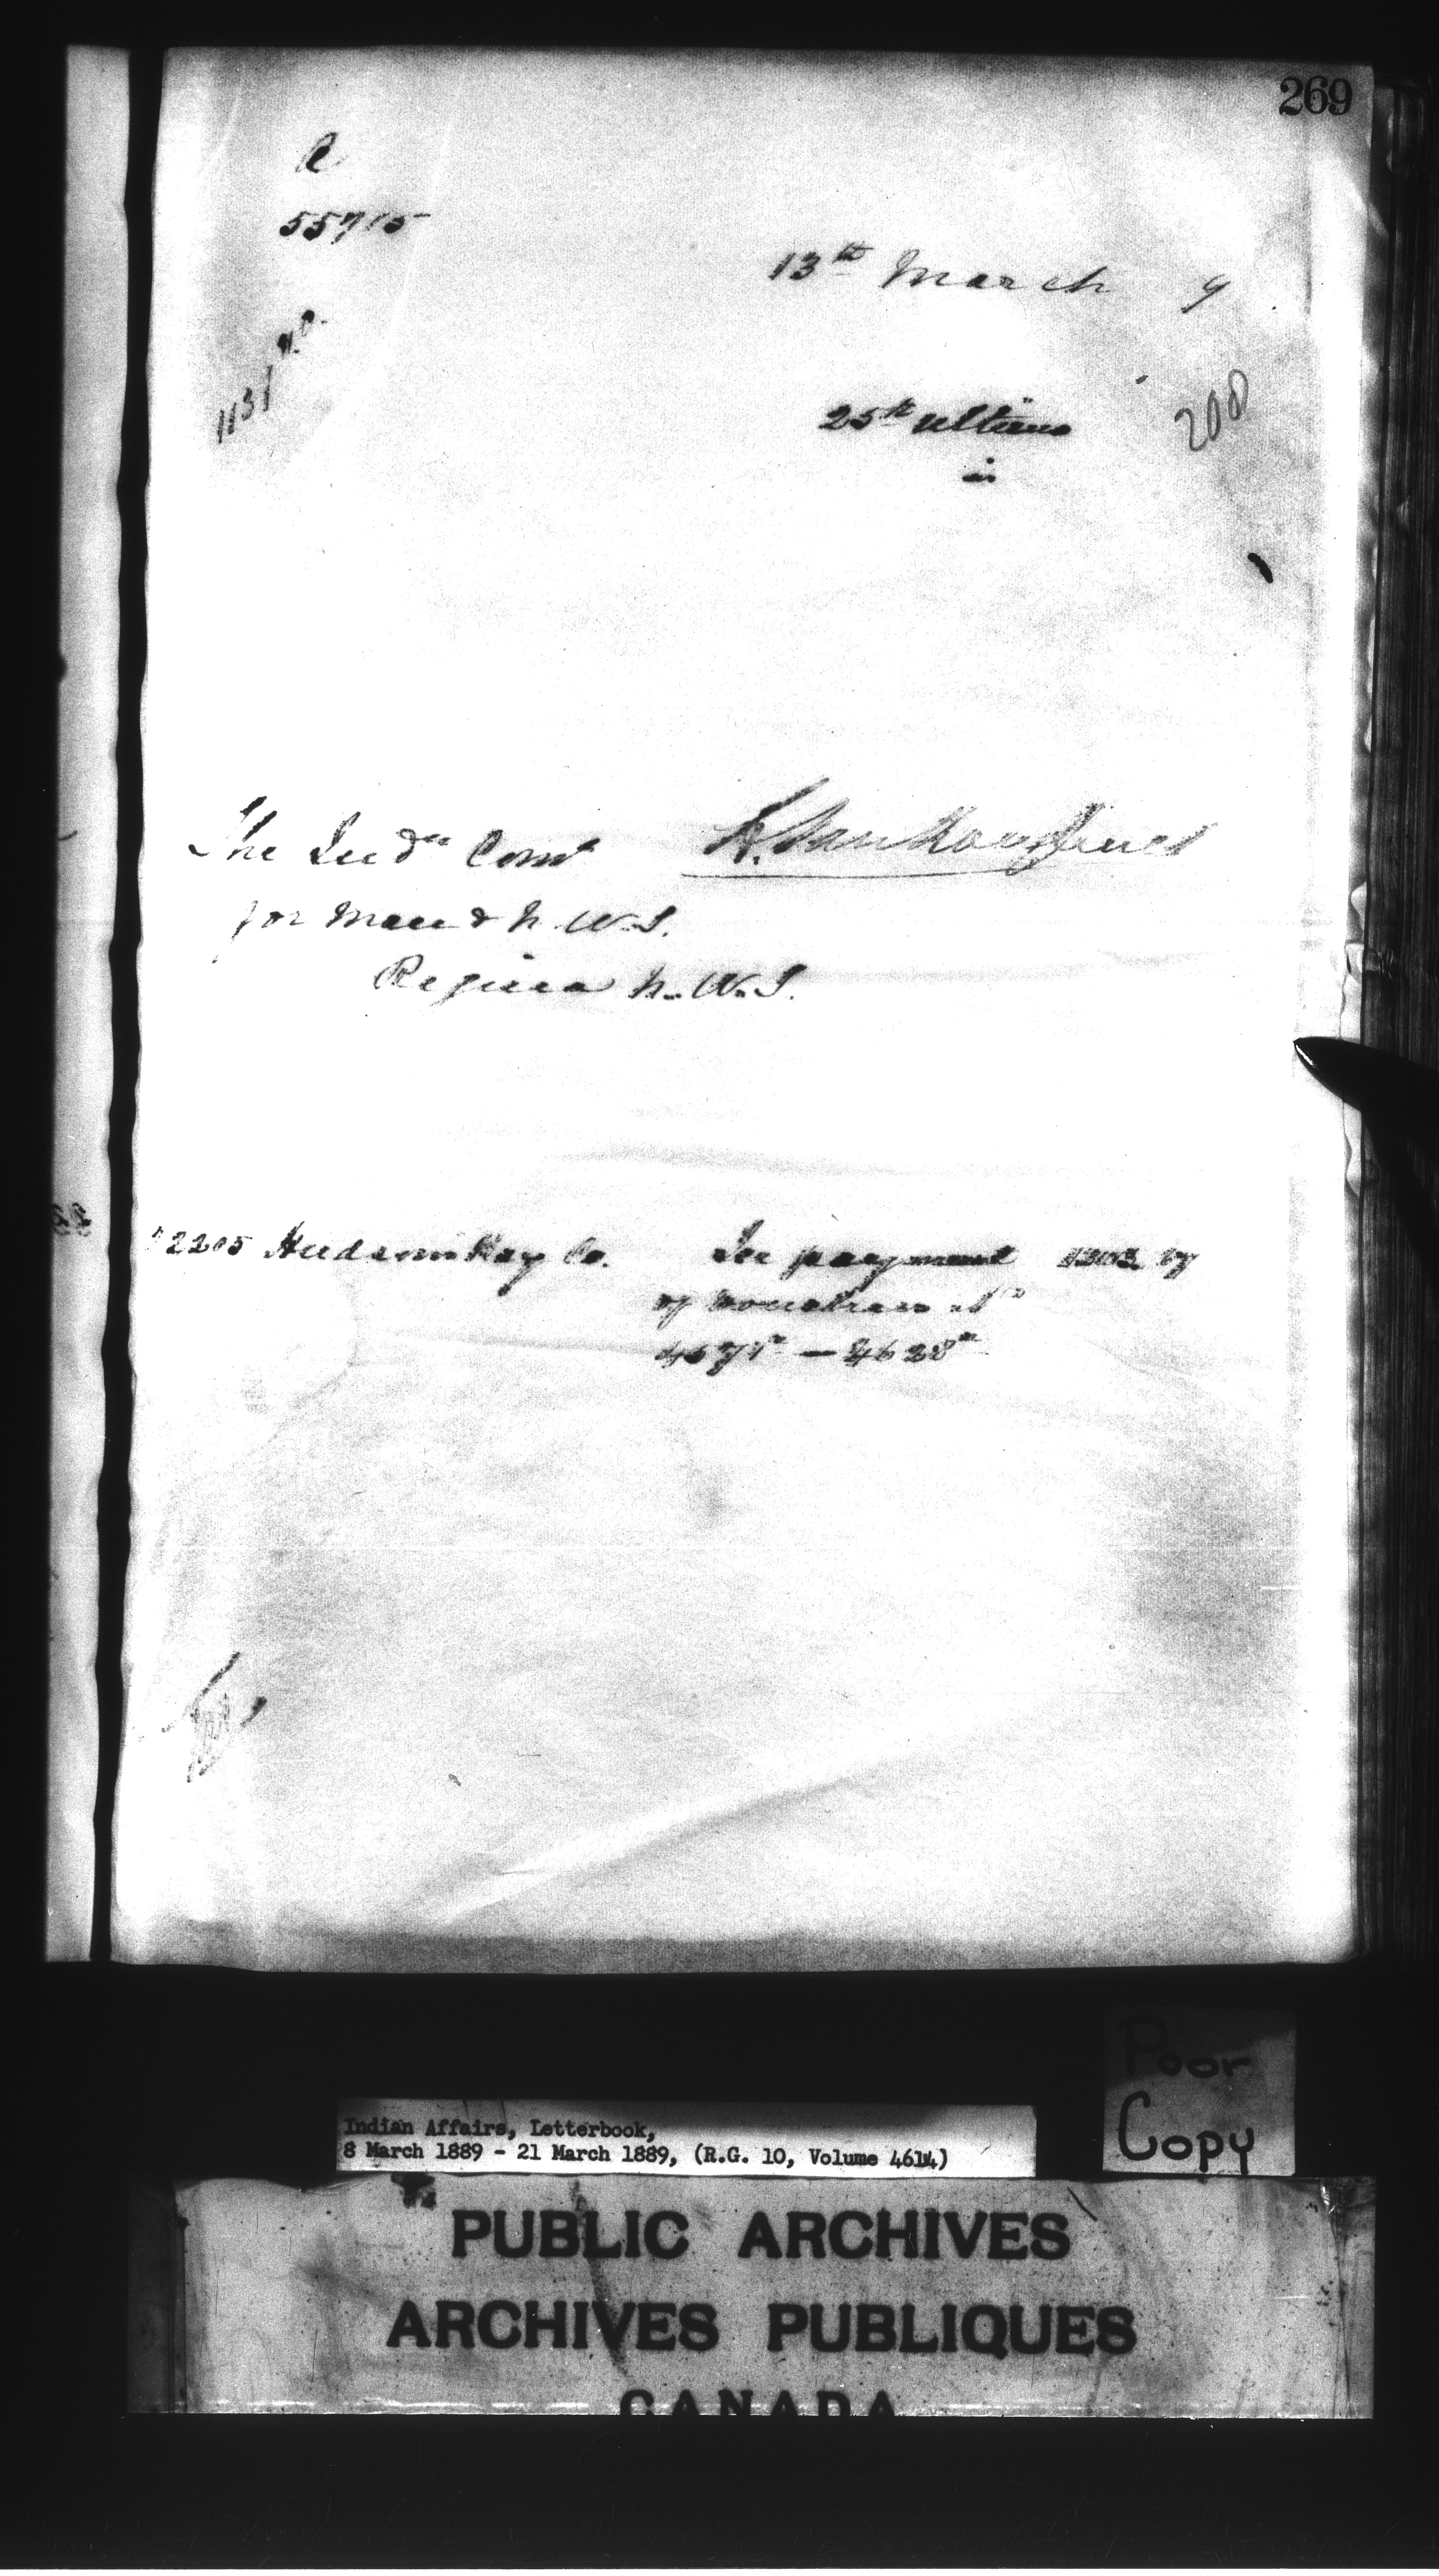 269
R
55715
13th March 9
1131
25th ultimo
is
200
The Indn Comr
L. Vankoughnet
for Man & N.W.T.
Regina N.W.T.
2205 Hudsons Bay Co. In payment
of vouchers No
4628
Poor
Copy
Indian Affairs, Letterbook,
8 March 1889 - 21 March 1889, (R.G. 10, Volume 4614)
PUBLIC ARCHIVES
ARCHIVES PUBLIQUES
CANADA